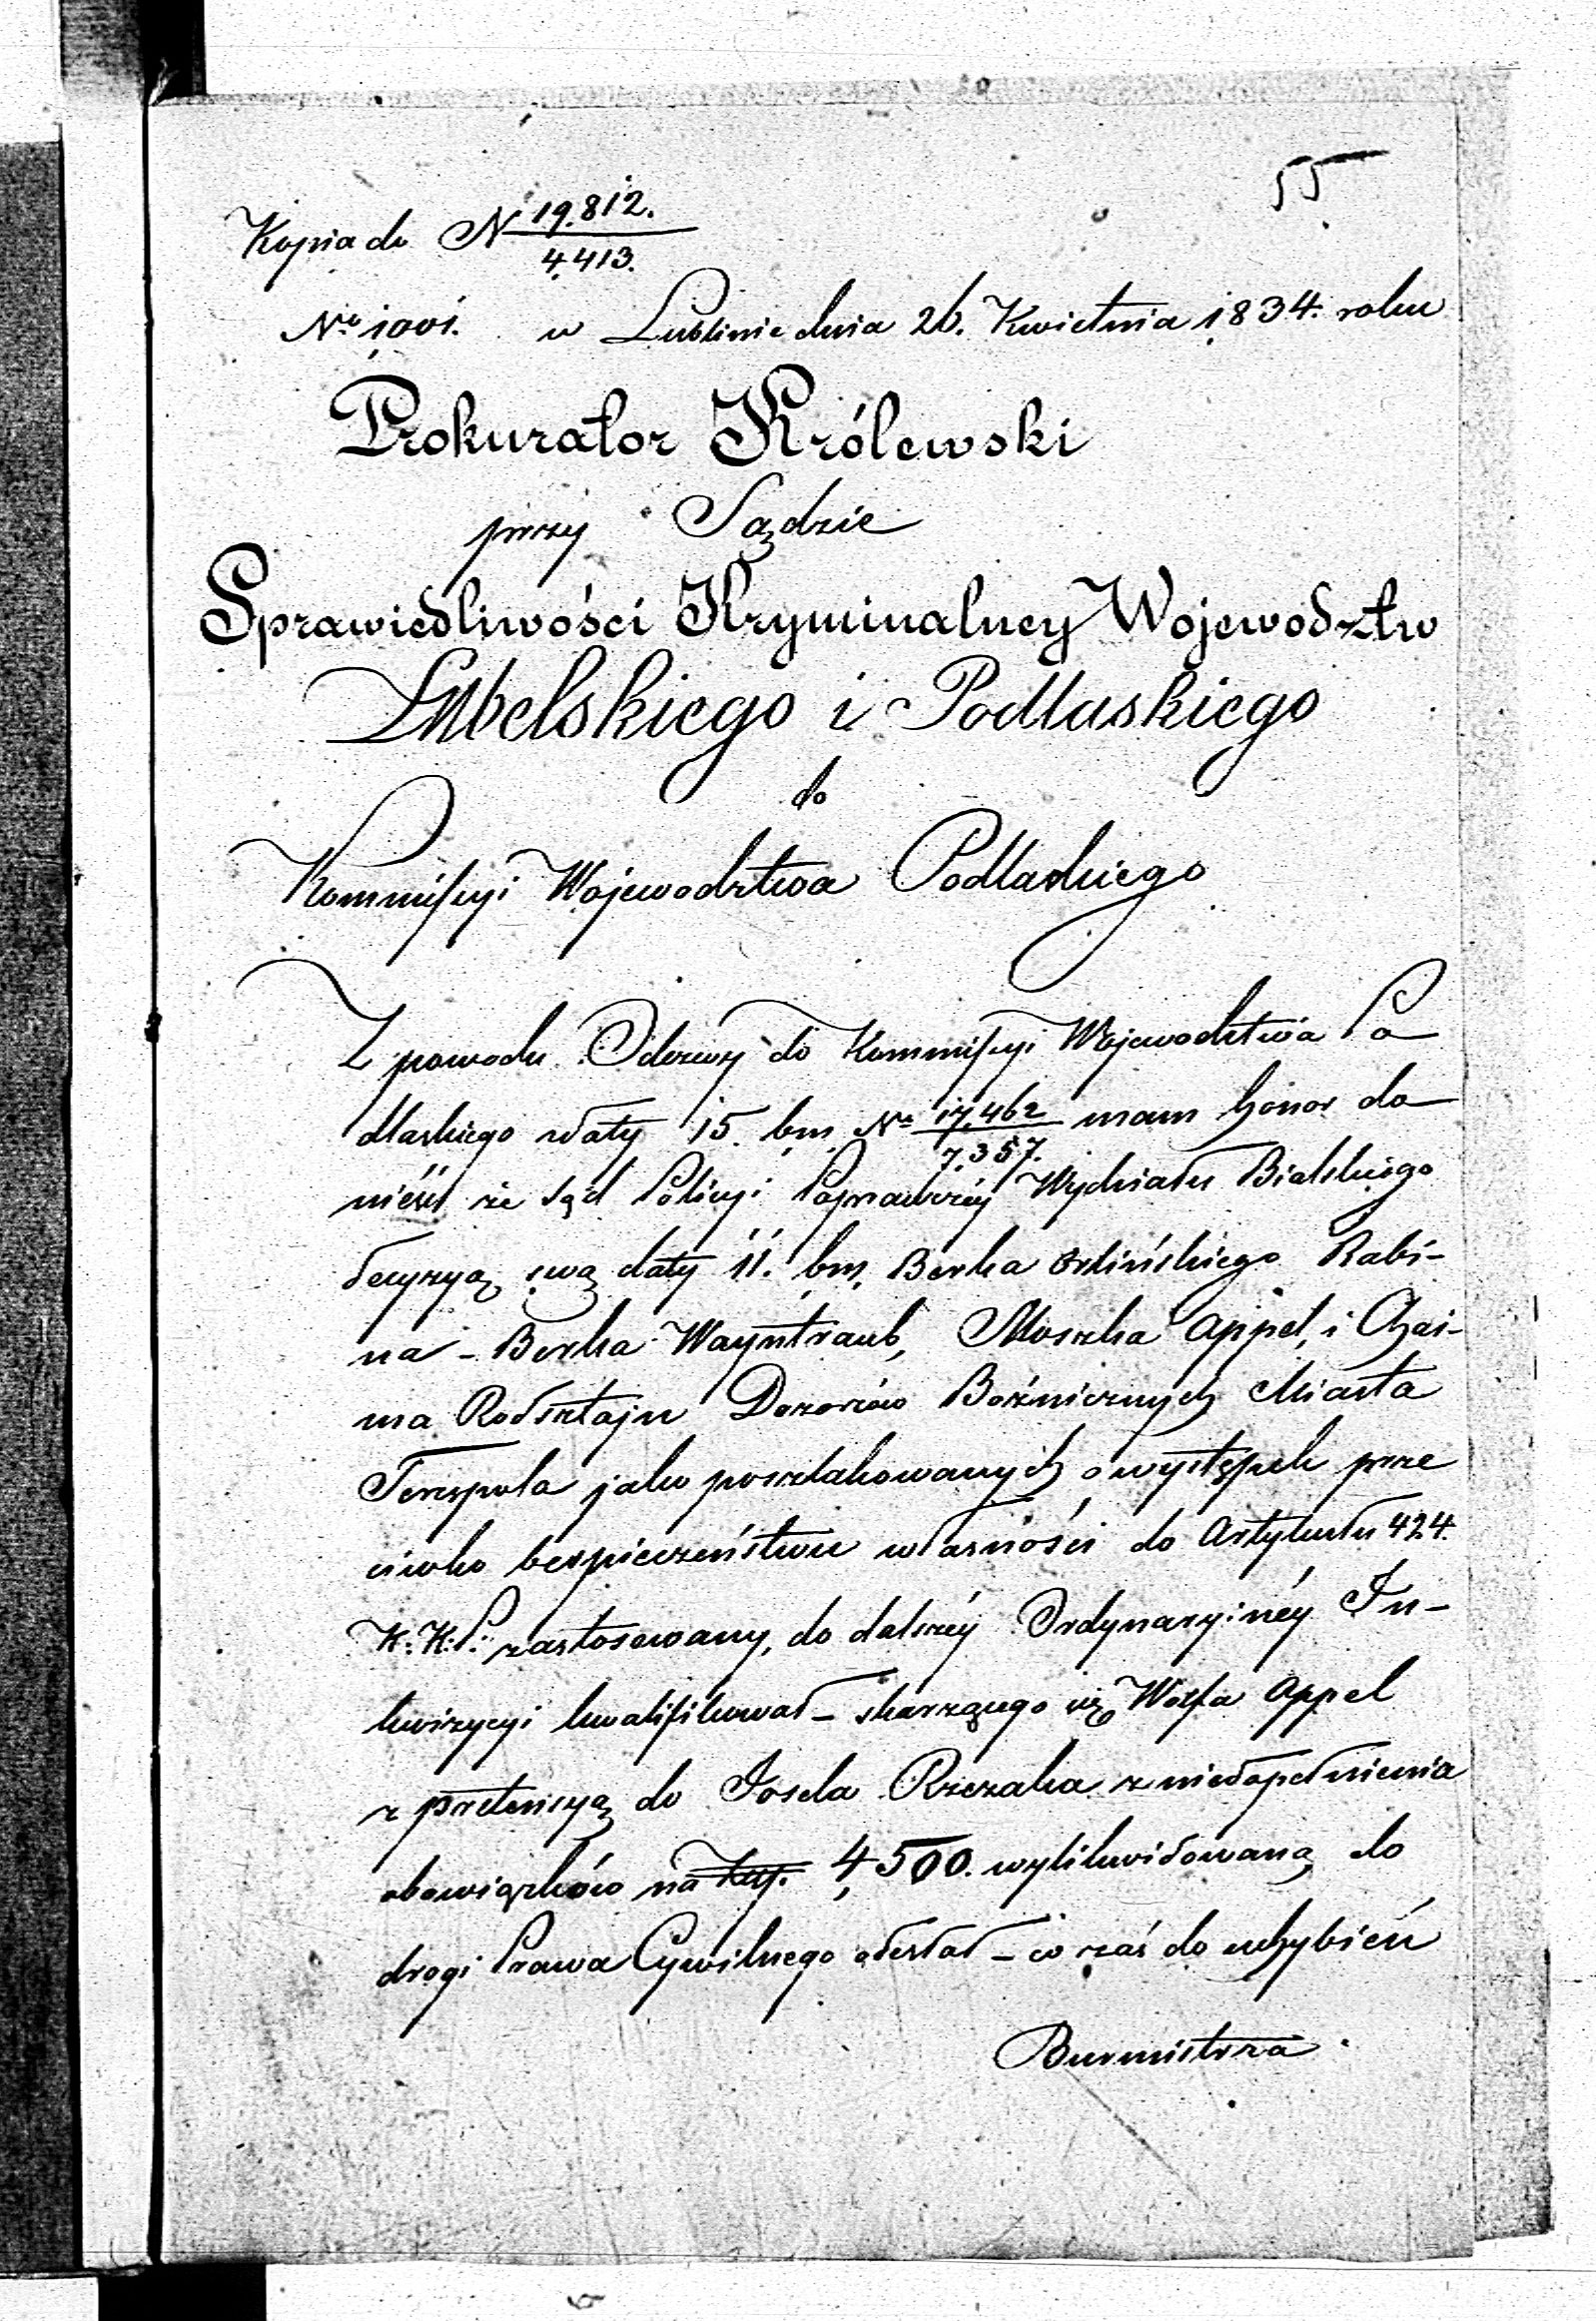 55
Kopia do N 19.812.
4.413.
No 1001. w Lublinie dnia 26. Kwietnia 1834. roku
Prokurator Królewski
przy Sądzie
Sprawiedliwości Kryminalney Województw
Lubelskiego i Podlaskiego
do
Kommissyi Województwa Podlaskiego
Z powodu Odezwy do Kommissyi Województwa Po
dlaskiego z daty 15. bm. No 17.462 mam honor do
7.357.
nieść że Sąd Policyi Poprawczéy Wydziału Bialskiego
decyzyą swą daty 11. bm. Berka Orlińskiego Rabi-
na - Berka Wayntraub, Moszka Appel, i Chai-
ma Rodsztajn Dozorców Bożnicznych Miasta
Terespola jako poszlakowanych o występek prze
ciwko bezpieczeństwu własności do Artykułu 424.
K: K: P: zastosowany, do dalszéy Ordynaryinéy In-
kwizycyi kwalifikował - skarzącego się Wolfa Appel
z pretensyą do Josela Rzezaka z niedopełnienia
obowiązków na 4,500. wylikwidowaną do
drogi Prawa Cywilnego odesłał - co zaś do uchybień
Burmistrza